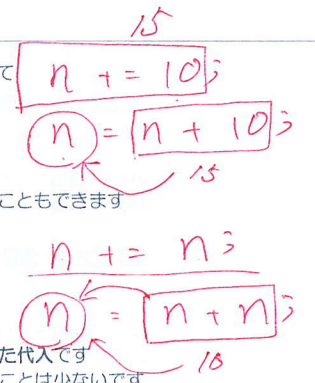 15
て
n += 10;
n = n + 10;
15
こともできます
n += n;
n = n + n;
た代入です
10
ことは少ないです